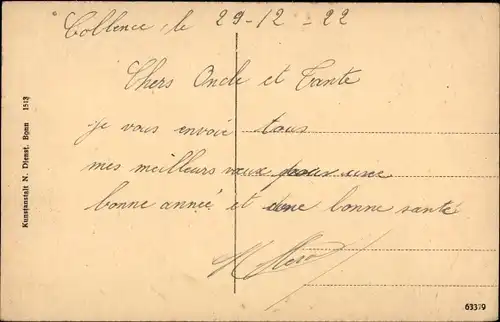 Coblence, le 29-12-22
Chers Oncle et Tante
je vous envoie tous
mes meilleurs vœux pour une
bonne année et une bonne santé
Kunstanstalt N. Dienst, Bonn 1513
63379